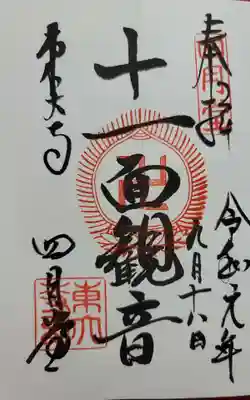 奉拝
令和元年
九月十六日
十一面観音
東大寺
四月堂